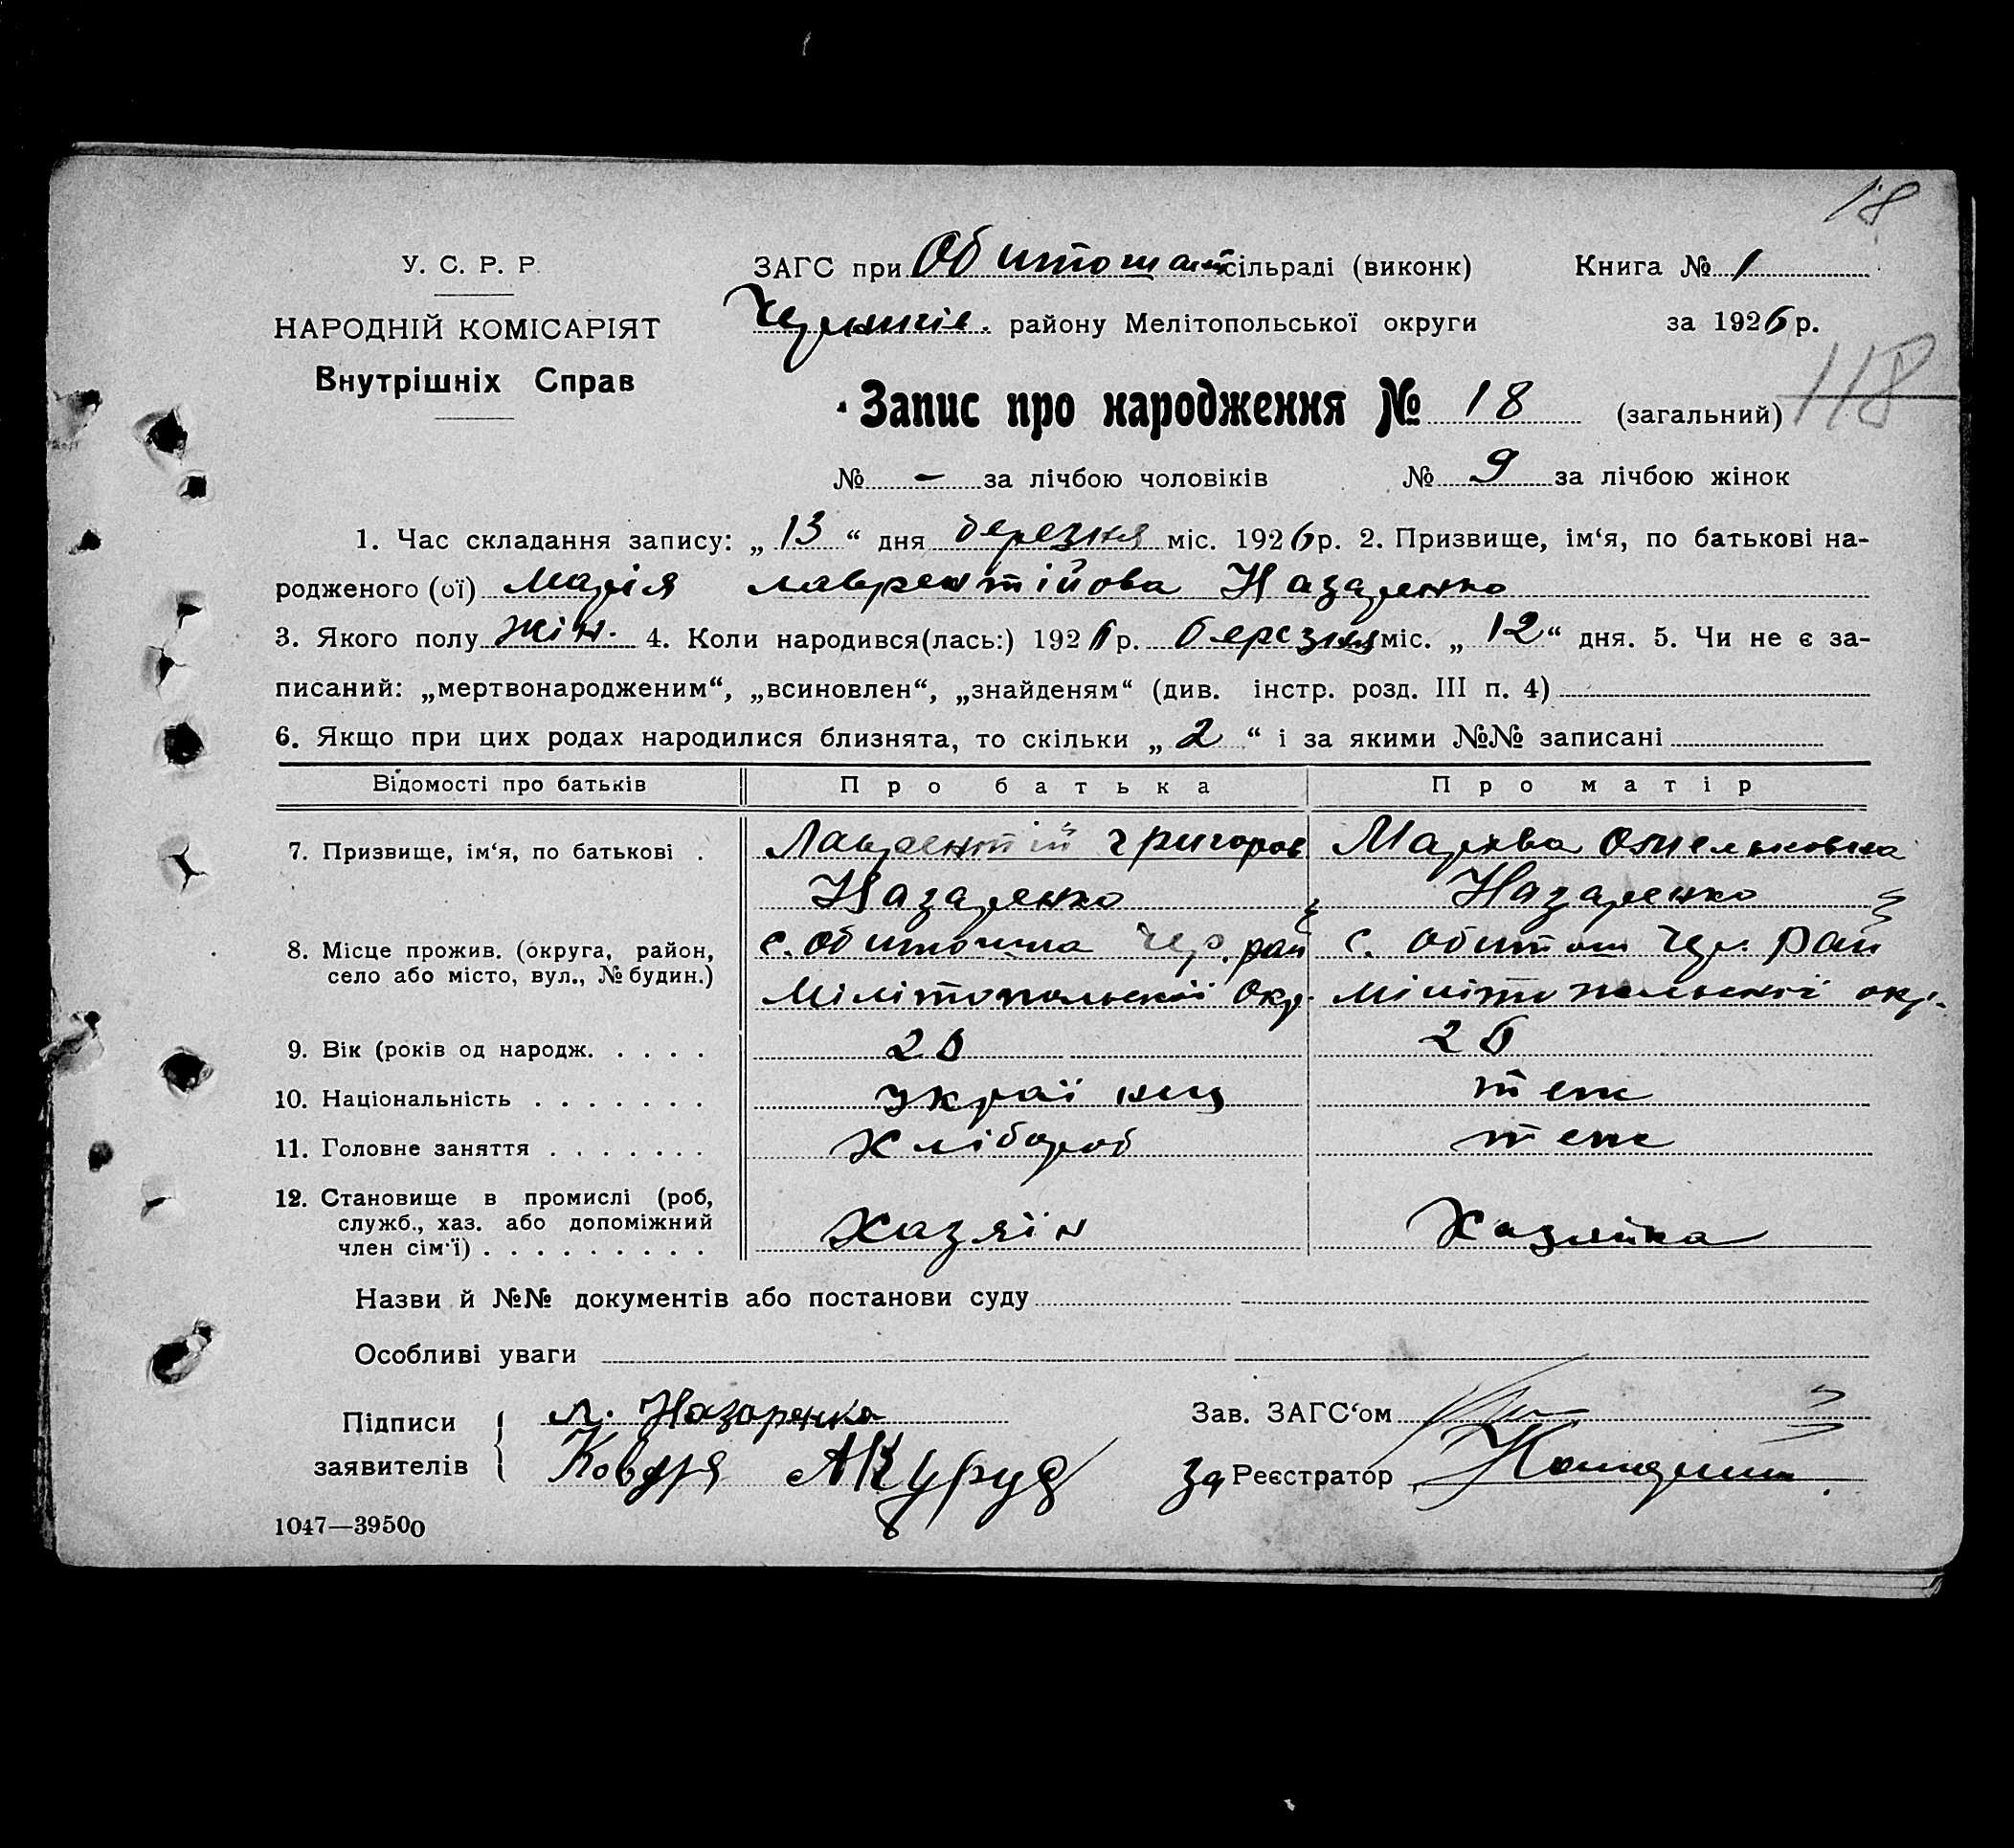 18
У. С. Р. Р.
НАРОДНІЙ КОМІСАРІЯТ
Внутрішніх Справ
ЗАГС при Обитошан сільраді (виконк) Книга № 1
району Мелітопольської округи за 1926 р.
Запис про народження № 18 (загальний) 118
№ - за лічбою чоловіків № 9 за лічбою жінок
1. Час складання запису: „ 13 “ дня березня міс. 1926 р. 2. Призвище, ім‘я, по батькові на-
родженого (ої) Марія Лаврентійова Назаренко
3. Якого полу жін. 4. Коли народився(лась:) 1926 р. березня міс. „ 12 “ дня. 5. Чи не є за-
писаний: „мертвонародженим“, „всиновлен“, „знайденям“ (див. інстр. розд. III п. 4)
6. Якщо при цих родах народилися близнята, то скільки „ 2 “ і за якими №№ записані
Відомості про батьків Про батька Про матір
7. Призвище, ім‘я, по батькові . Лаврентій Григоров Мархва Омельковна
Назаренко Назаренко
8. Місце прожив. (округа, район, село або місто, вул., № будин.) с. Обиточна Чер. рай с. Обитош Чер. рай
Мілітопольскої Окр. Мілітопольскої окр.
9. Вік (років од народж. . . . . 26 26
10. Національність . . . . . . . Українц теж
11. Головне заняття . . . . . . . Хлібороб теж
12. Становище в промислі (роб, служб., хаз. або допоміжний член сім‘ї) . . . . . . . . . Хазяїн Хазяйка
Назви й №№ документів або постанови суду
Особливі уваги
Підписи заявителів Л. Назаренко
Зав. ЗАГС‘ом
За Реєстратор
1047—39500